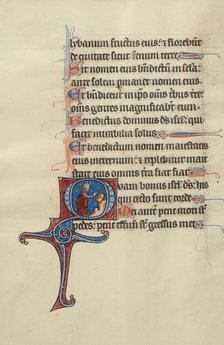 lybanum fructus eius: et florebunt
de ciuitate sicut fenum terre.
Sit nomen eius bndictum in scla:
ante solem pmanet nomen eius.
Et bndicent in ipo oms tbus tre:
oms gentes magnificabunt eum.
Benedictus dominus ds isrl: qui
facit mirabilia solus.
Et benedictum nomen maiestatis
eius in eternum: et replebitur maie
state eius omnis tra fiat fiat.
Quam bonus isrl ds: his
qui recto sunt corde.
Mei autē pene moti st
pedes: pene effusi st gressus mei.